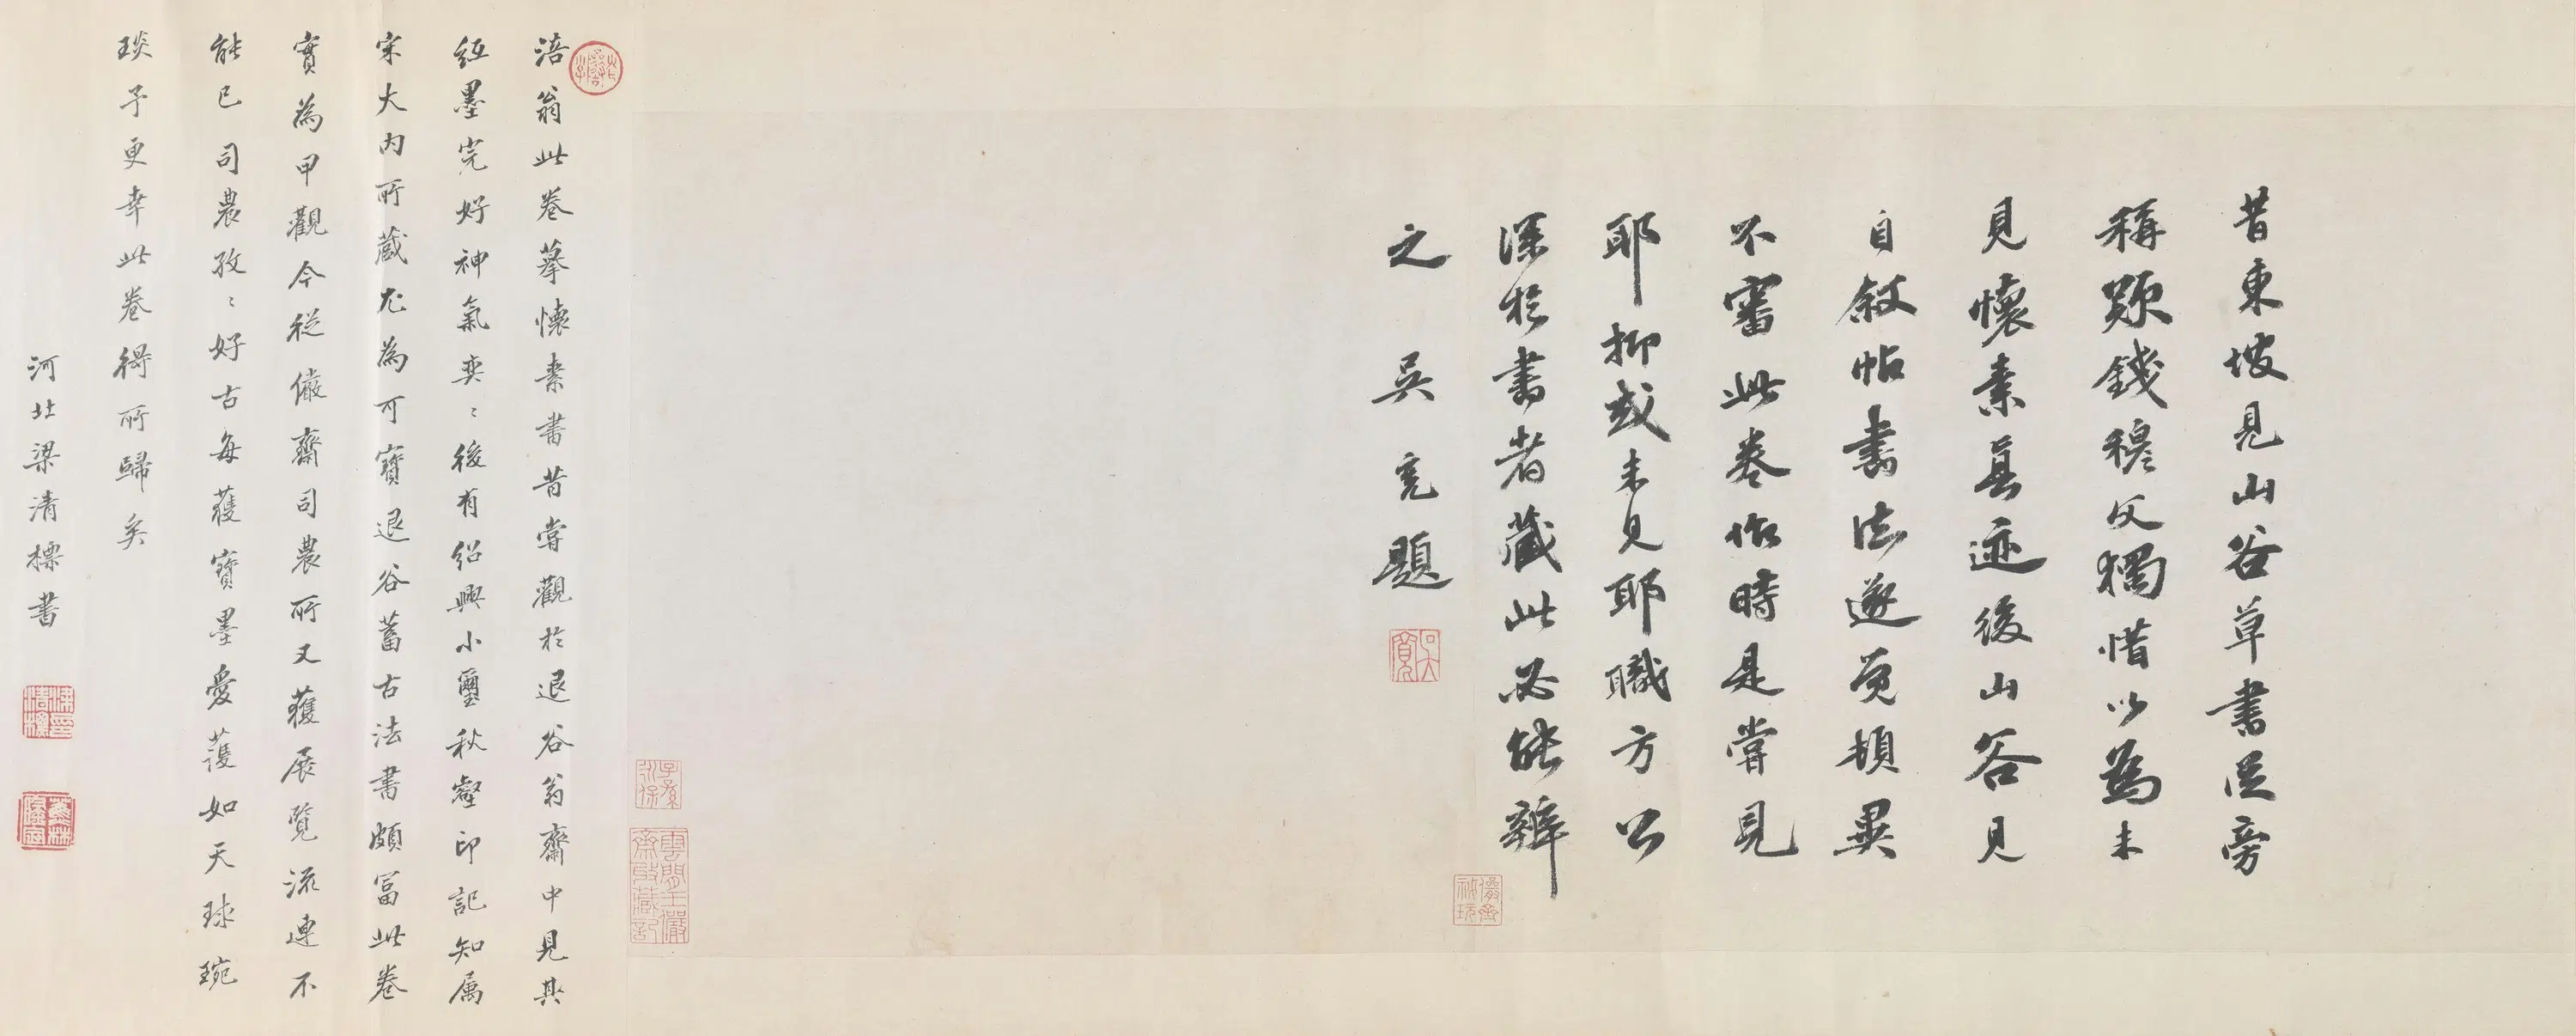 昔東坡見山谷草書巨旁
稱歎錢穆父獨惜以為未
見懷素真迹後山谷見
自敘帖書法遂覺頓異
不審此卷作時是嘗見
耶抑或未見耶職方公
深於書者藏此必能辯
之 吳寬題
涪翁此卷摹懷素書昔嘗觀於退谷翁齋中見其
紙墨完好神氣奕〻後有紹興小璽秋壑印記知属
宋大内所藏尤為可寶退谷蓄古法書頗富此卷
實為甲觀今從儼齋司農所又獲展覽流連不
能已司農孜〻好古每蒦寶墨愛護如天球琬
琰予更幸此卷得所歸矣
河北梁清標書
子孫永保
雲間王儼齋收藏記
儼齋秘玩